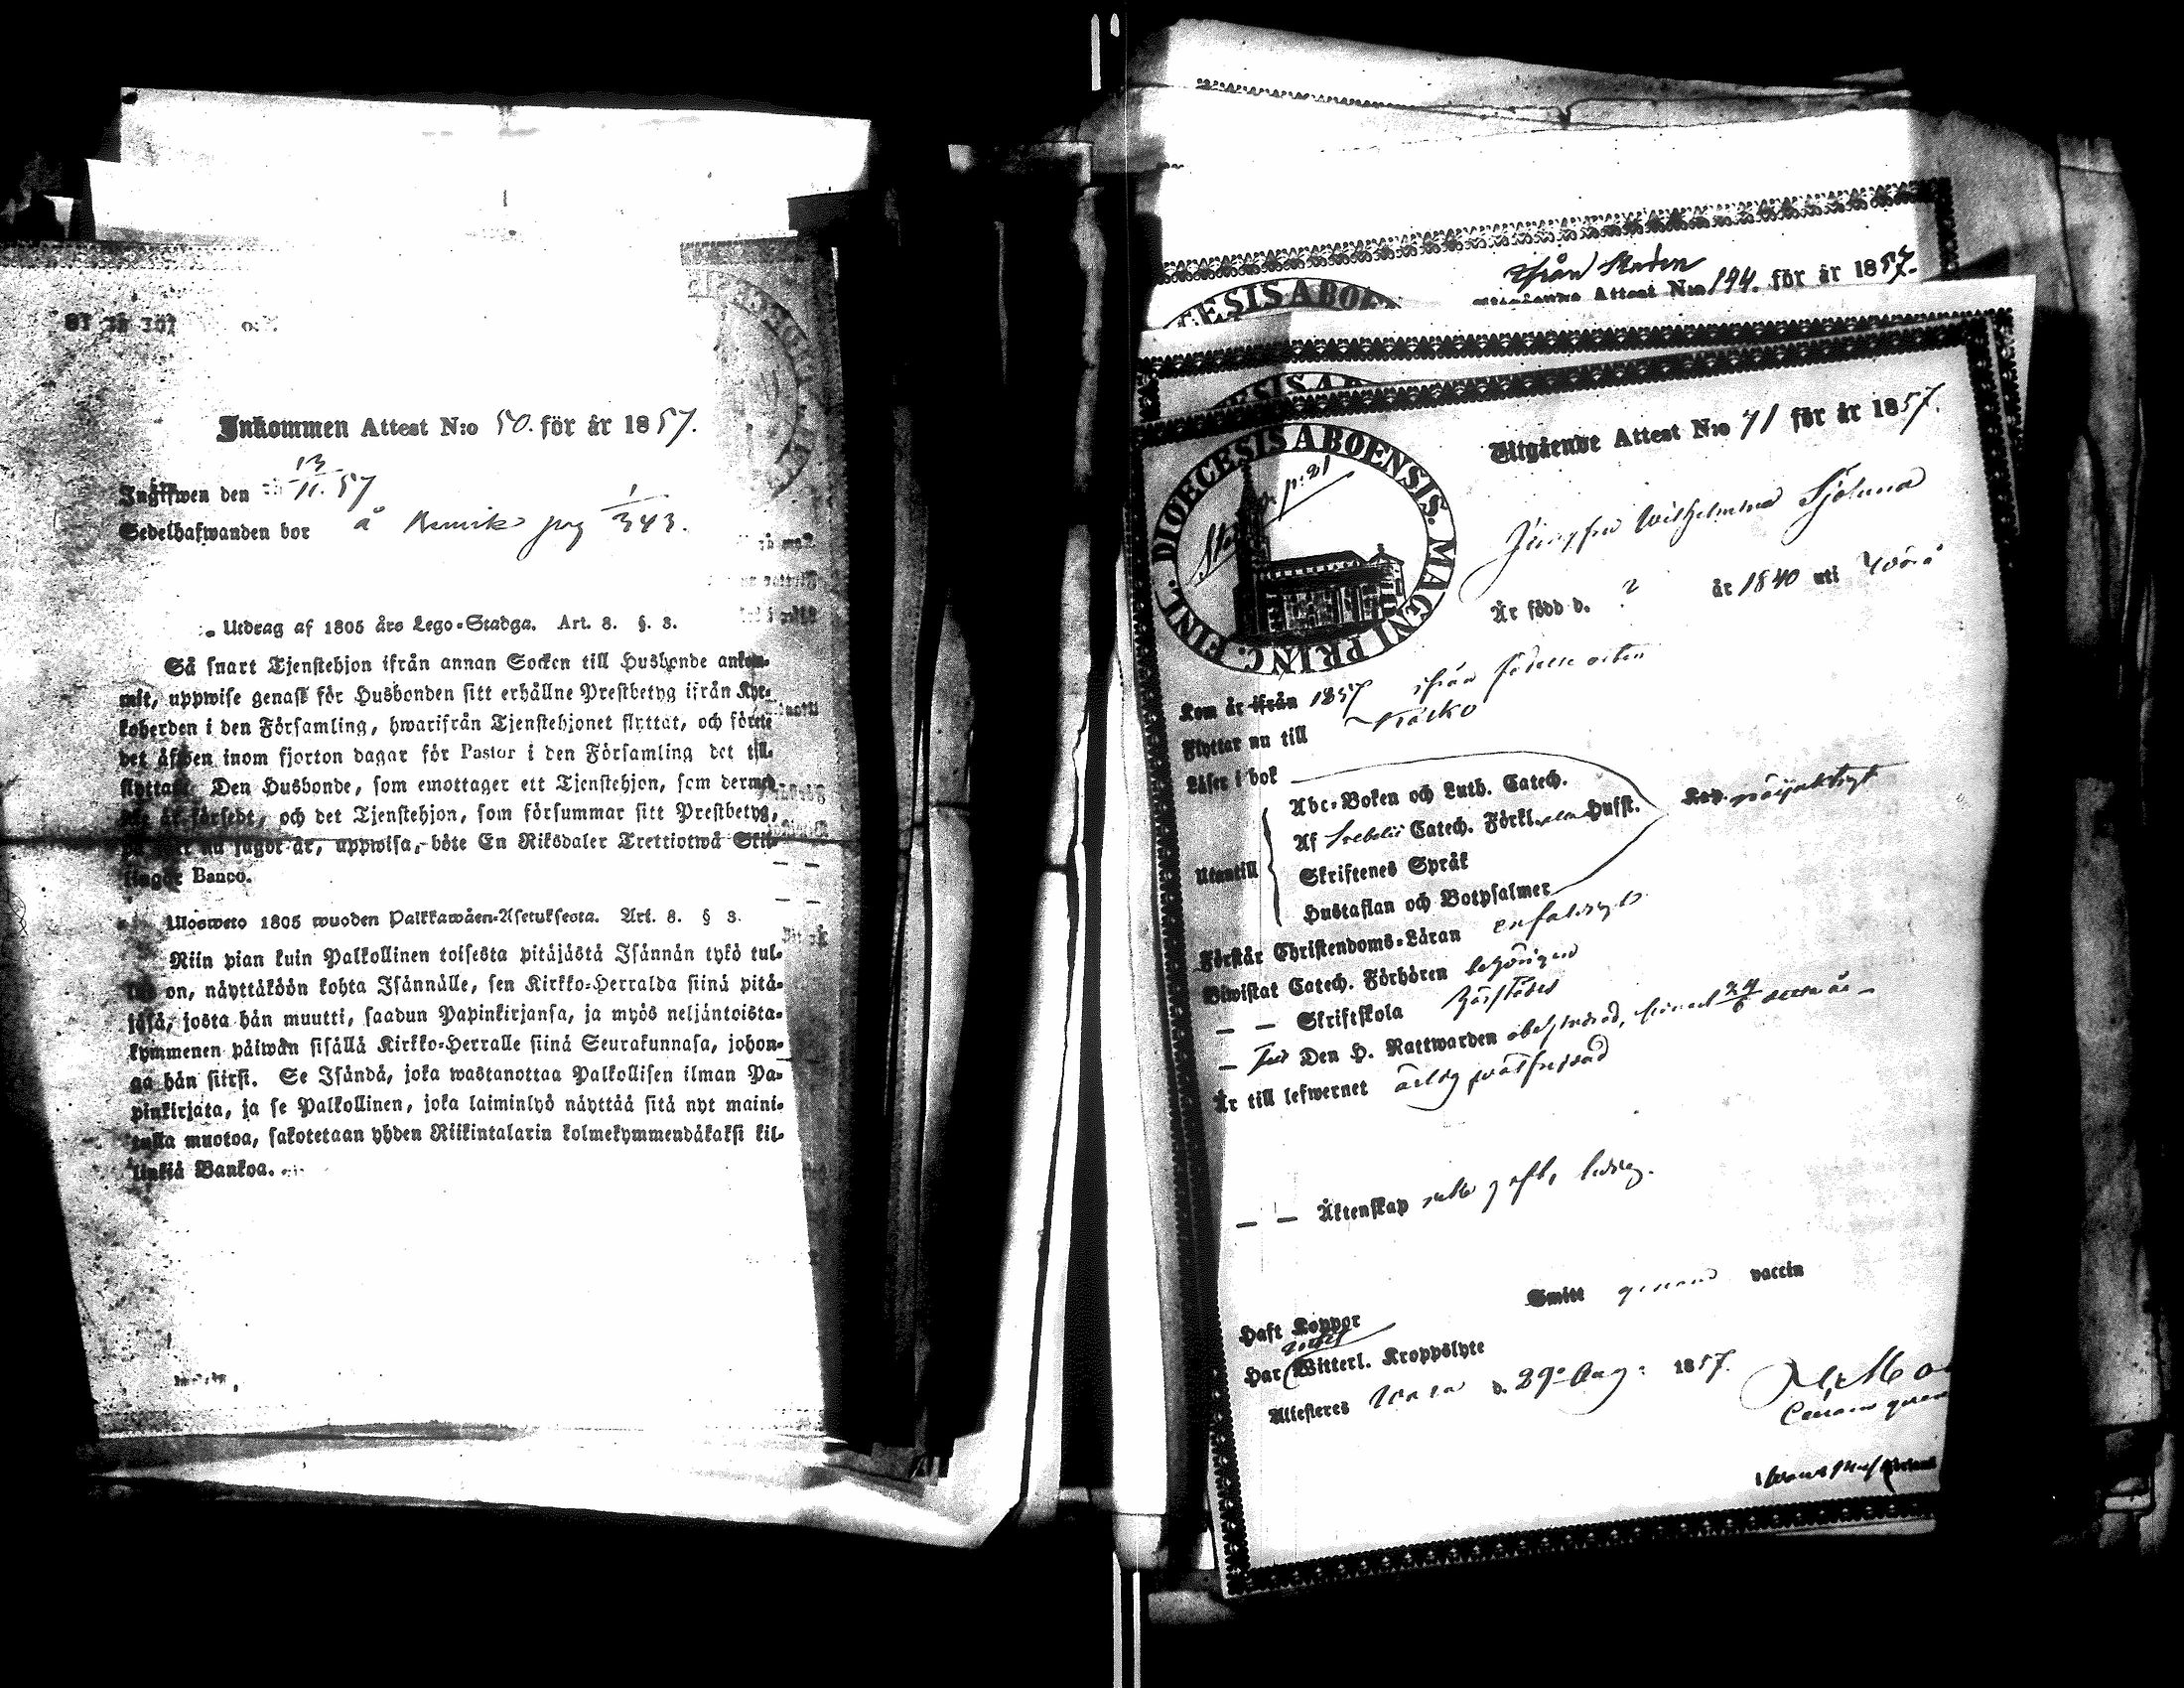 Inkommen Attest N:o 50. för år 1857.
Ingifwen den 13/11. 57
Sedelhafwanden bor å pag 1/343.
Utdrag af 1805 års Lego-Stadga. Art. 8. §. 3.
Så snart Tjenstehjon ifrån annan Socken till Husbonde ankom-
mit, uppwise genast för Husbonden sitt erhållne Prestbetyg ifrån Kyr-
koherden i den Församling, hwarifrån Tjenstehjonet flyttat, och förete
det äfwen inom fjorton dagar för Pastor i den Församling det till-
flyttat. Den Husbonde, som emottager ett Tjenstehjon, som dermed
är försedt, och det Tjenstehjon, som försummar sitt Prestbetyg,
nu sagdt är, uppwisa, böte En Riksdaler Trettiotwå Skil-
lingar Banco.
Ulosweto 1805 wuoden Palkkawäen-Asetuksesta. Art. 8. § 3.
Niin pian kuin Palkollinen toisesta pitäjästä Isännän tykö tul-
lut on, näyttäköön kohta Isännälle, sen Kirkko-Herralda siinä pitä-
jäsä, josta hän muutti, saadun Papinkirjansa, ja myös neljäntoista-
kymmenen päiwän sisällä Kirkko-Herralle siinä Seurakunnasa, johon-
ga hän siirsi. Se Isändä, joka wastanottaa Palkollisen ilman Pa-
pinkirjata, ja se Palkollinen, joka laiminlyö näyttää sitä nyt maini-
tulla muotoa, sakotetaan yhden Riikintalarin kolmekymmendäkaksi kil-
linkiä Bankoa.
ifrån Staden
Utgående Attest N:o 194. för år 1857.
DIOECESIS ABOENSIS. MAGNI PRINC. FINL.
p: 21
Utgående Attest N:o 71 för år 1857.
Jungfru Wilhelmina Sjölund
Är född d. ? år 1840 uti Wörå
Kom år ifrån 1857 ifrån födelseorten
Flyttar nu till
Läser i bok
Utantill
Abc-Boken och Luth. Catech.
Af Svebelii Catech. Förkl. utan Husst.
Skriftenes Språk
Hustaflan och Botpsalmer
nöjaktigt
Förstår Christendoms-Läran enfaldigt
Biwistat Catech. Förhören behörigen
— — Skriftskola härstädes
— Den H. Nattwarden obehindrad, 24/6 detta år —
Är till lefwernet ärlig, wälfrejdad
— — Äktenskap icke gift, ledig.
Haft Koppor Smitt genom vaccin
Har Witterl. Kroppslyte
Attesteras Wasa d. 29 Aug: 1857.